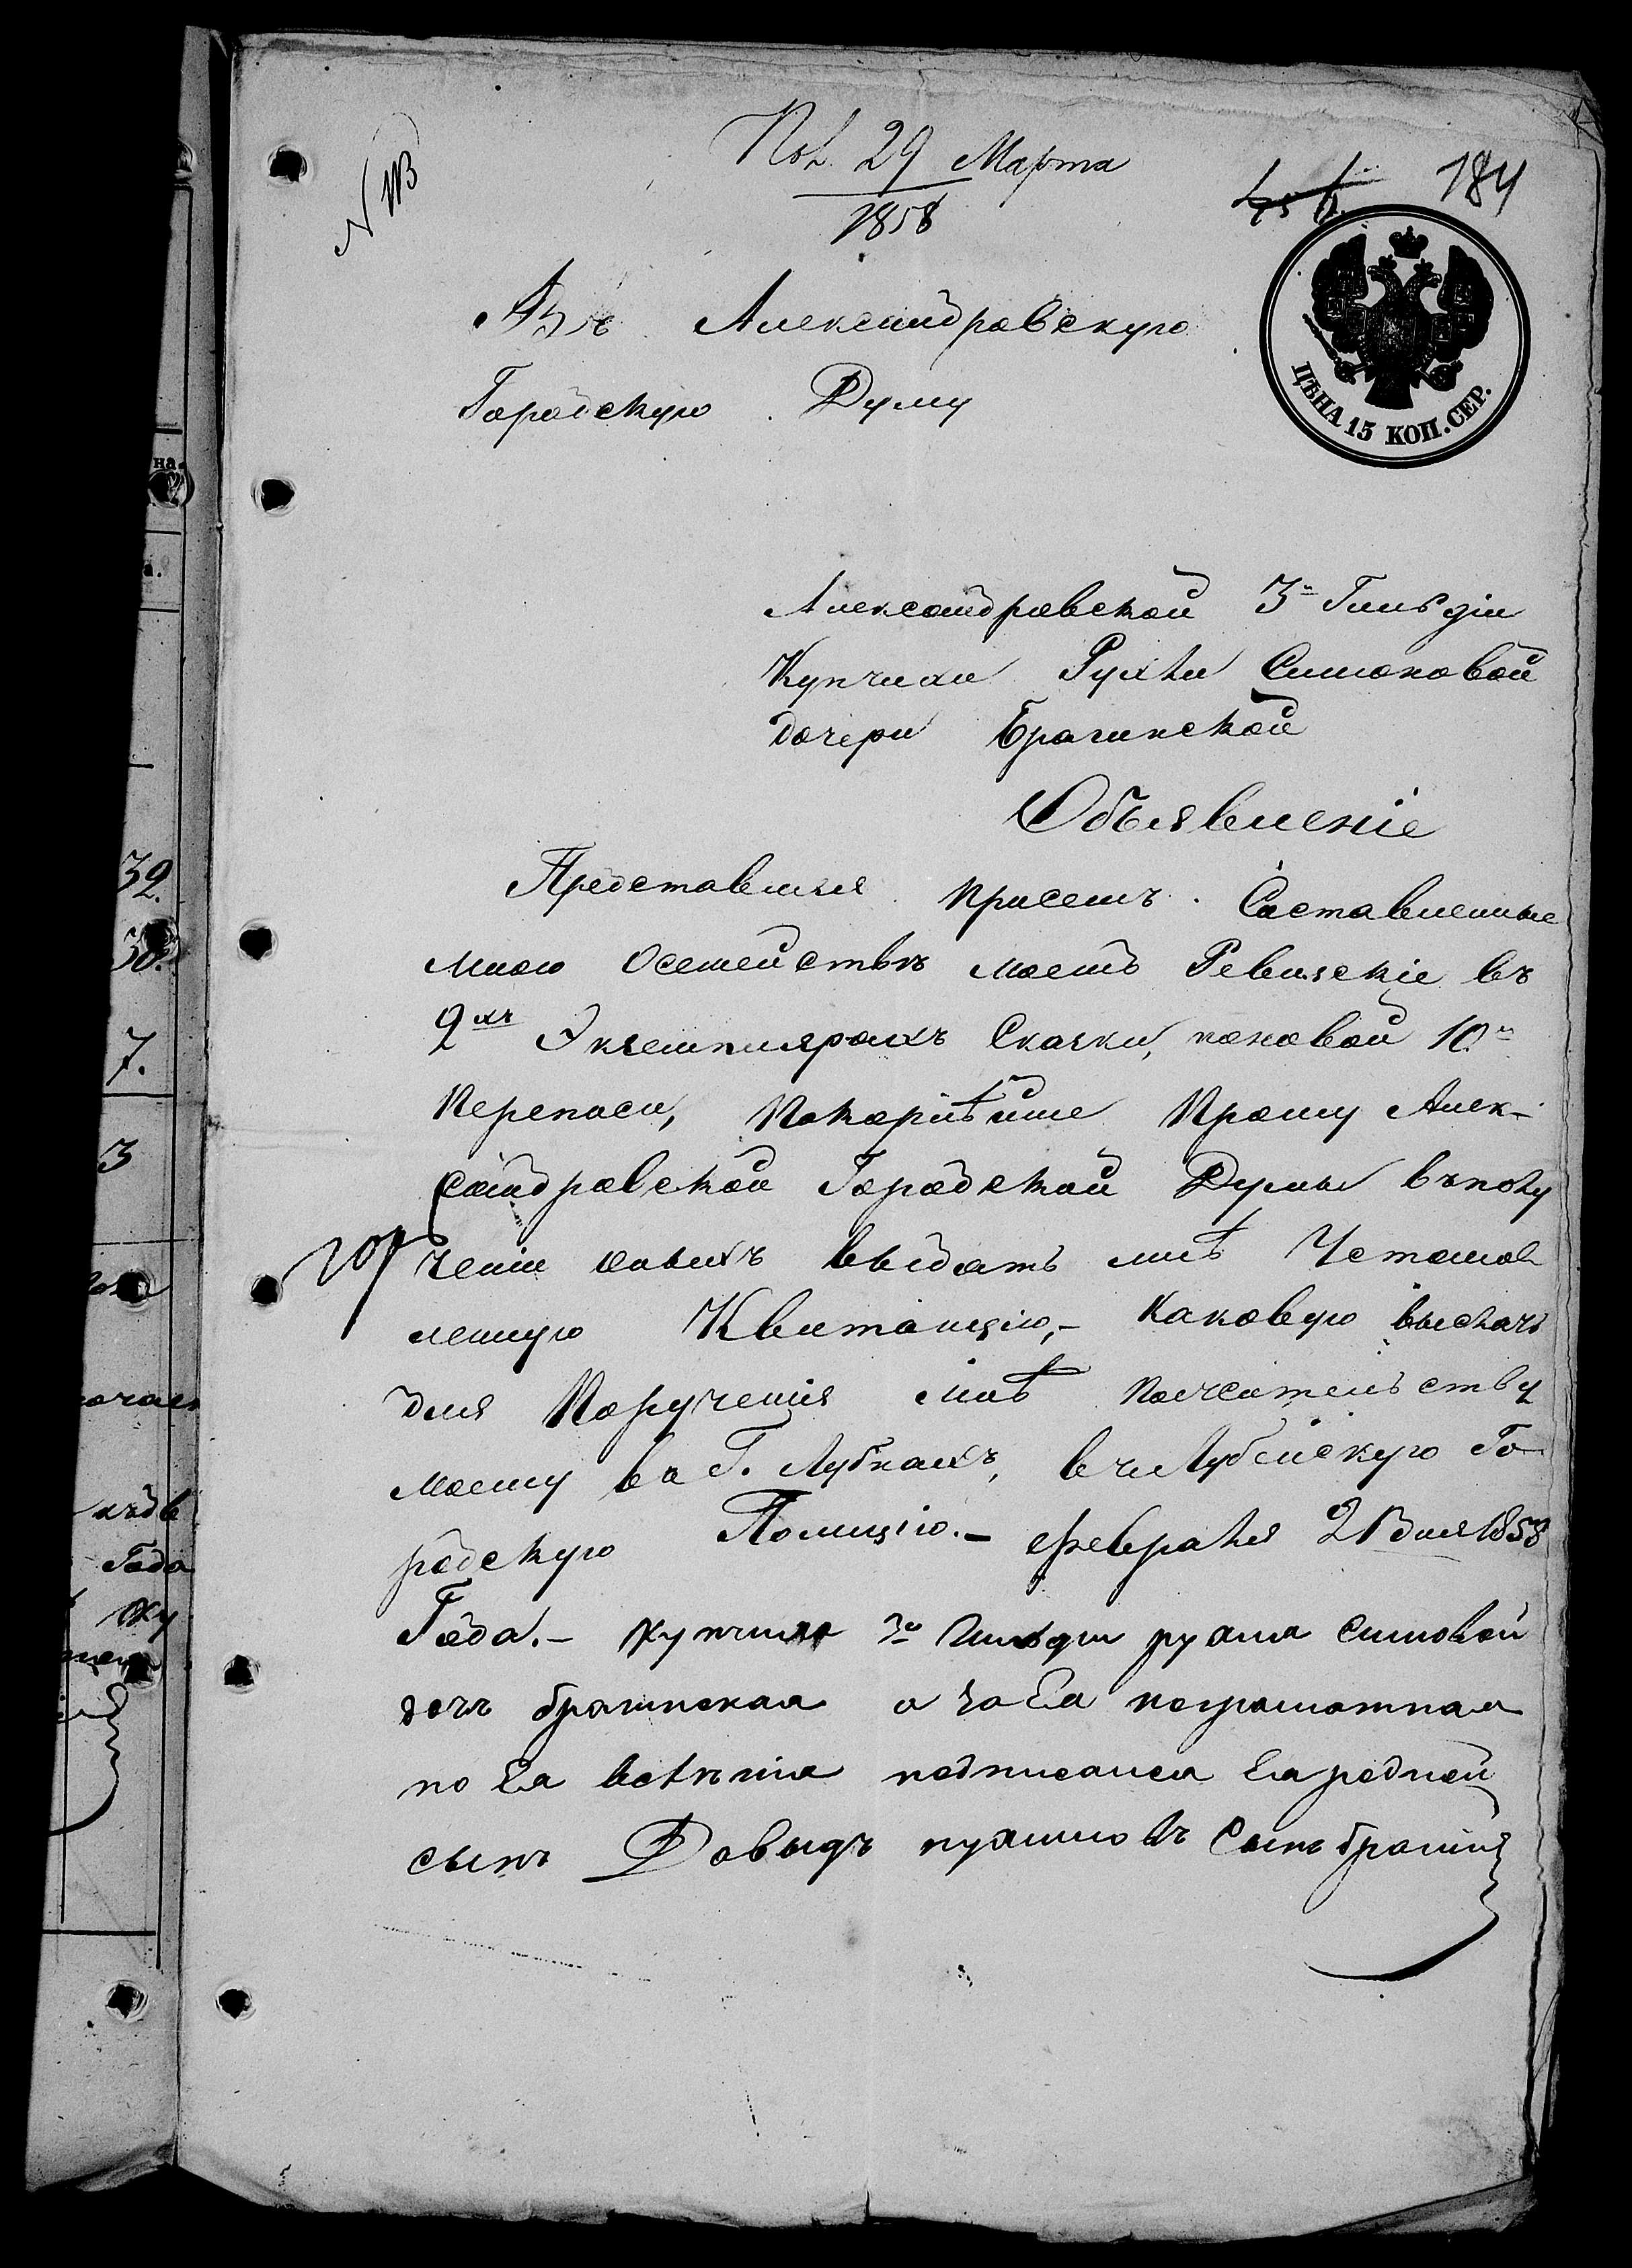 Пол. 29 Марта
1858
184
Въ Александровскую
Городскую Думу
ЦѢНА 15 КОП. СЕР.
Александровской 3й Гильдіи
Купчихи Рухли Симоновой
дочери Брагинской
Объявленіе
Представляя присемъ Составленные
мною осемействѣ моемъ Ревизскіе въ
2хъ Экземплярахъ Сказки, поновой 10й
Переписи, Покорнѣйше Прошу Алек-
сандровской Городской Думы вполу
ченіи оныхъ выдать мнѣ Установ
ленную Квитанцію,- каковую выслать
для Порученія мнѣ пожительству
моему въ Г. Лубнахъ, въ Лубенскую Го-
родскую Полицію.- февраля 21 дня 1858
Года.- купчиха 3й гилдіи рухля симоновой
дочъ брагинская а заЕя неграмотная
по Ея подписался Ея родной
сынъ Довыдъ Сынъ брагинс
32.
30.
7.
3
Года